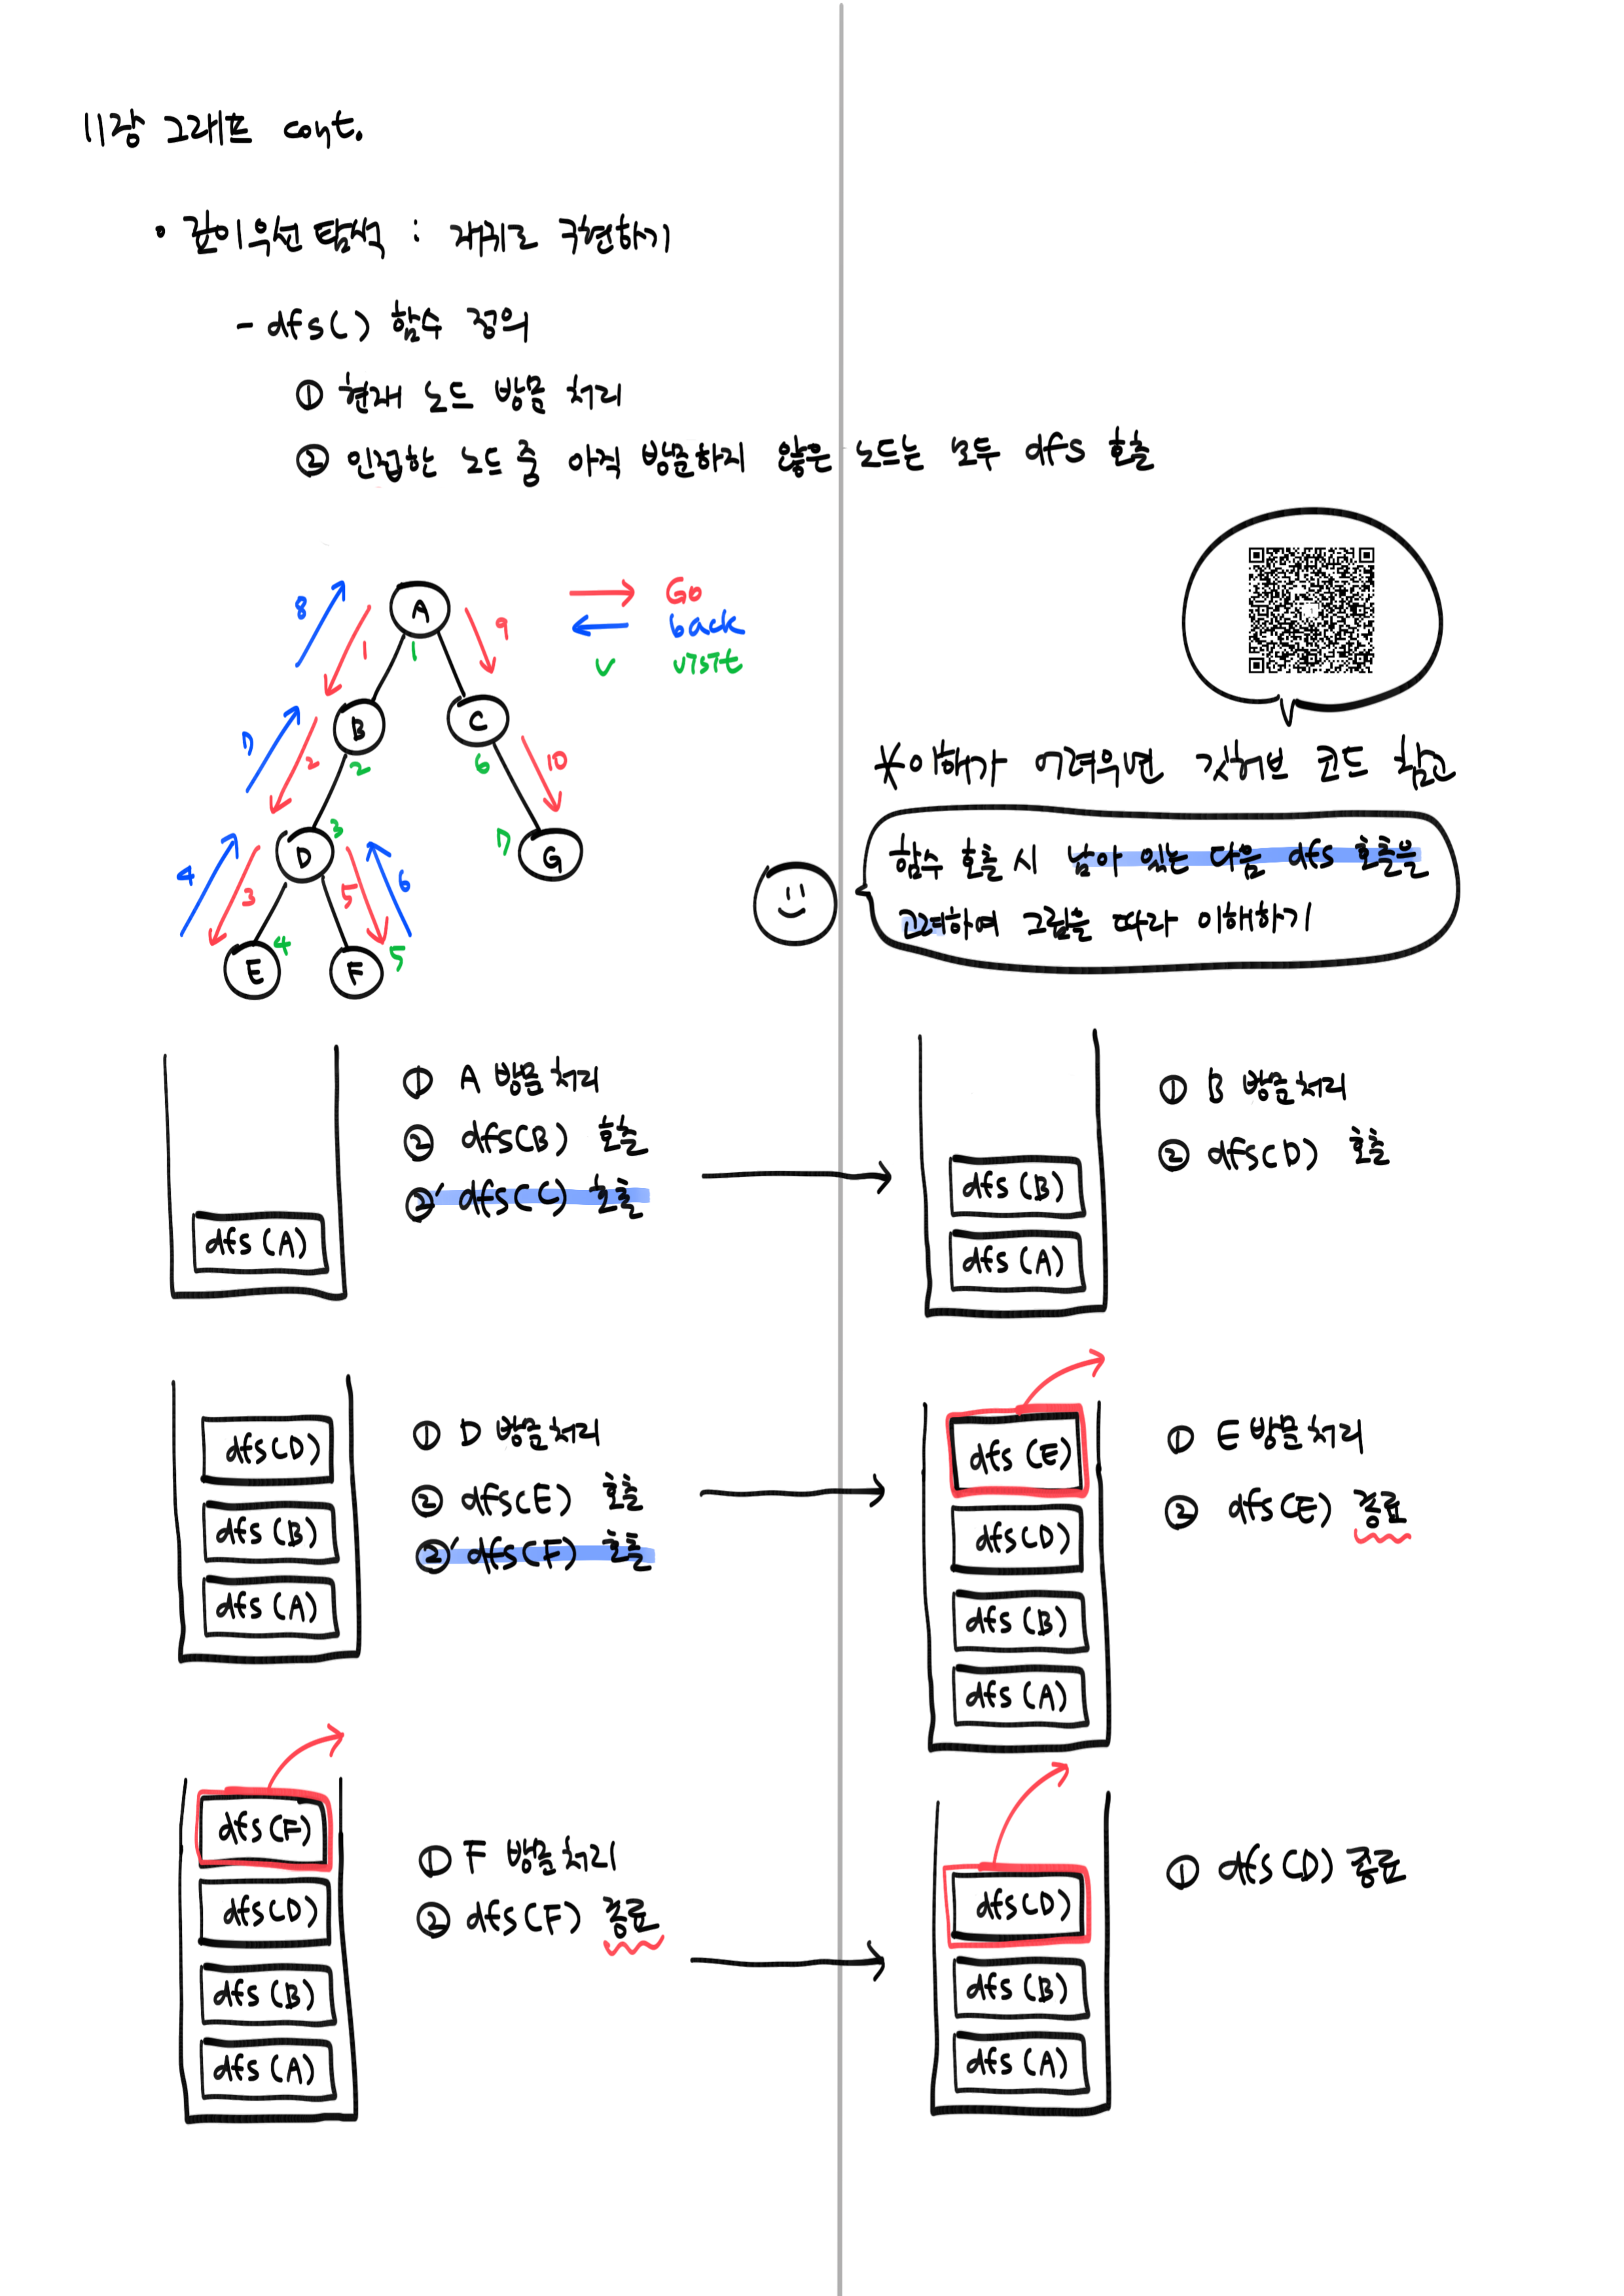 11강 그래프 cont.
• 깊이우선탐색 : 재귀로 구현하기
- dfs() 함수 정의
① 현재 노드 방문 처리
② 인접한 노드 중 아직 방문하지 않은 노드는 모두 dfs 호출
8
A
1
1
9
Go
back
v visit
7
B
2
2
C
6
10
4
D
3
3
5
6
7
G
E
4
F
5
*이해가 어려우면 깃허브 코드 참고
함수 호출 시 남아 있는 다음 dfs 호출을
고려하여 그림을 따라 이해하기
dfs(A)
① A 방문처리
② dfs(B) 호출
②' dfs(C) 호출
dfs(B)
dfs(A)
① B 방문처리
② dfs(D) 호출
dfs(D)
dfs(B)
dfs(A)
① D 방문처리
② dfs(E) 호출
②' dfs(F) 호출
dfs(E)
dfs(D)
dfs(B)
dfs(A)
① E 방문처리
② dfs(E) 종료
dfs(F)
dfs(D)
dfs(B)
dfs(A)
① F 방문처리
② dfs(F) 종료
dfs(D)
dfs(B)
dfs(A)
① dfs(D) 종료